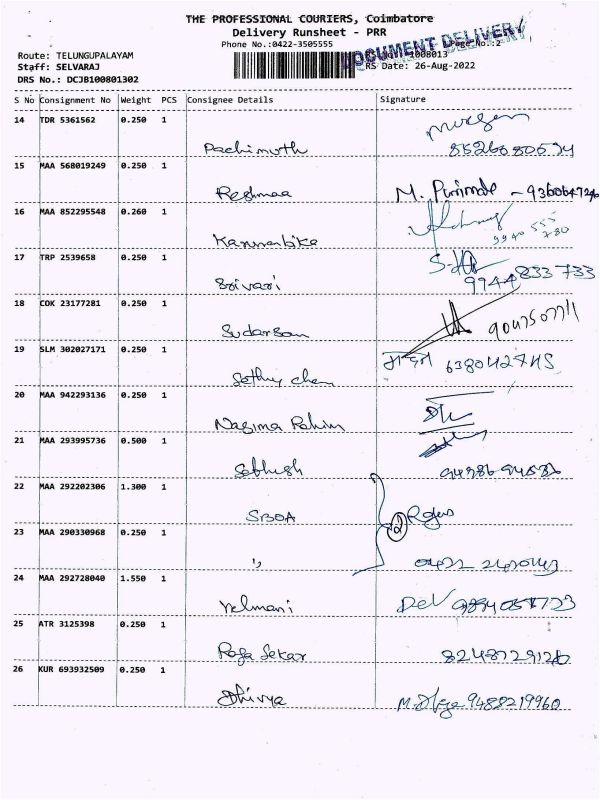 THE PROFESSIONAL COURIERS, Coimbatore
Delivery Runsheet - PRR
Phone No.:0422-3505555
DOCUMENT DELIVERY
Page No.:2
Route: TELUNGUPALAYAM
1008013
Staff: SELVARAJ
RS Date: 26-Aug-2022
DRS No.: DCJB100801302
S No Consignment No Weight PCS Consignee Details Signature
14 TDR 5361562 0.250 1
Pachimuth
15 MAA 568019249 0.250 1
Reshmaa
16 MAA 852295548 0.260 1
9940 555 780
17 TRP 2539658 0.250 1
Srivari 9944833733
18 COK 23177281 0.250 1
Sudarsan
19 SLM 302027171 0.250 1
20 MAA 942293136 0.250 1
Nagima Rahim
21 MAA 293995736 0.500 1
22 MAA 292202306 1.300 1
SBOA
23 MAA 290330968 0.250 1
24 MAA 292728040 1.550 1
Velmani
25 ATR 3125398 0.250 1
Raja Sekar
26 KUR 693932509 0.250 1
Dhivya 9488219960